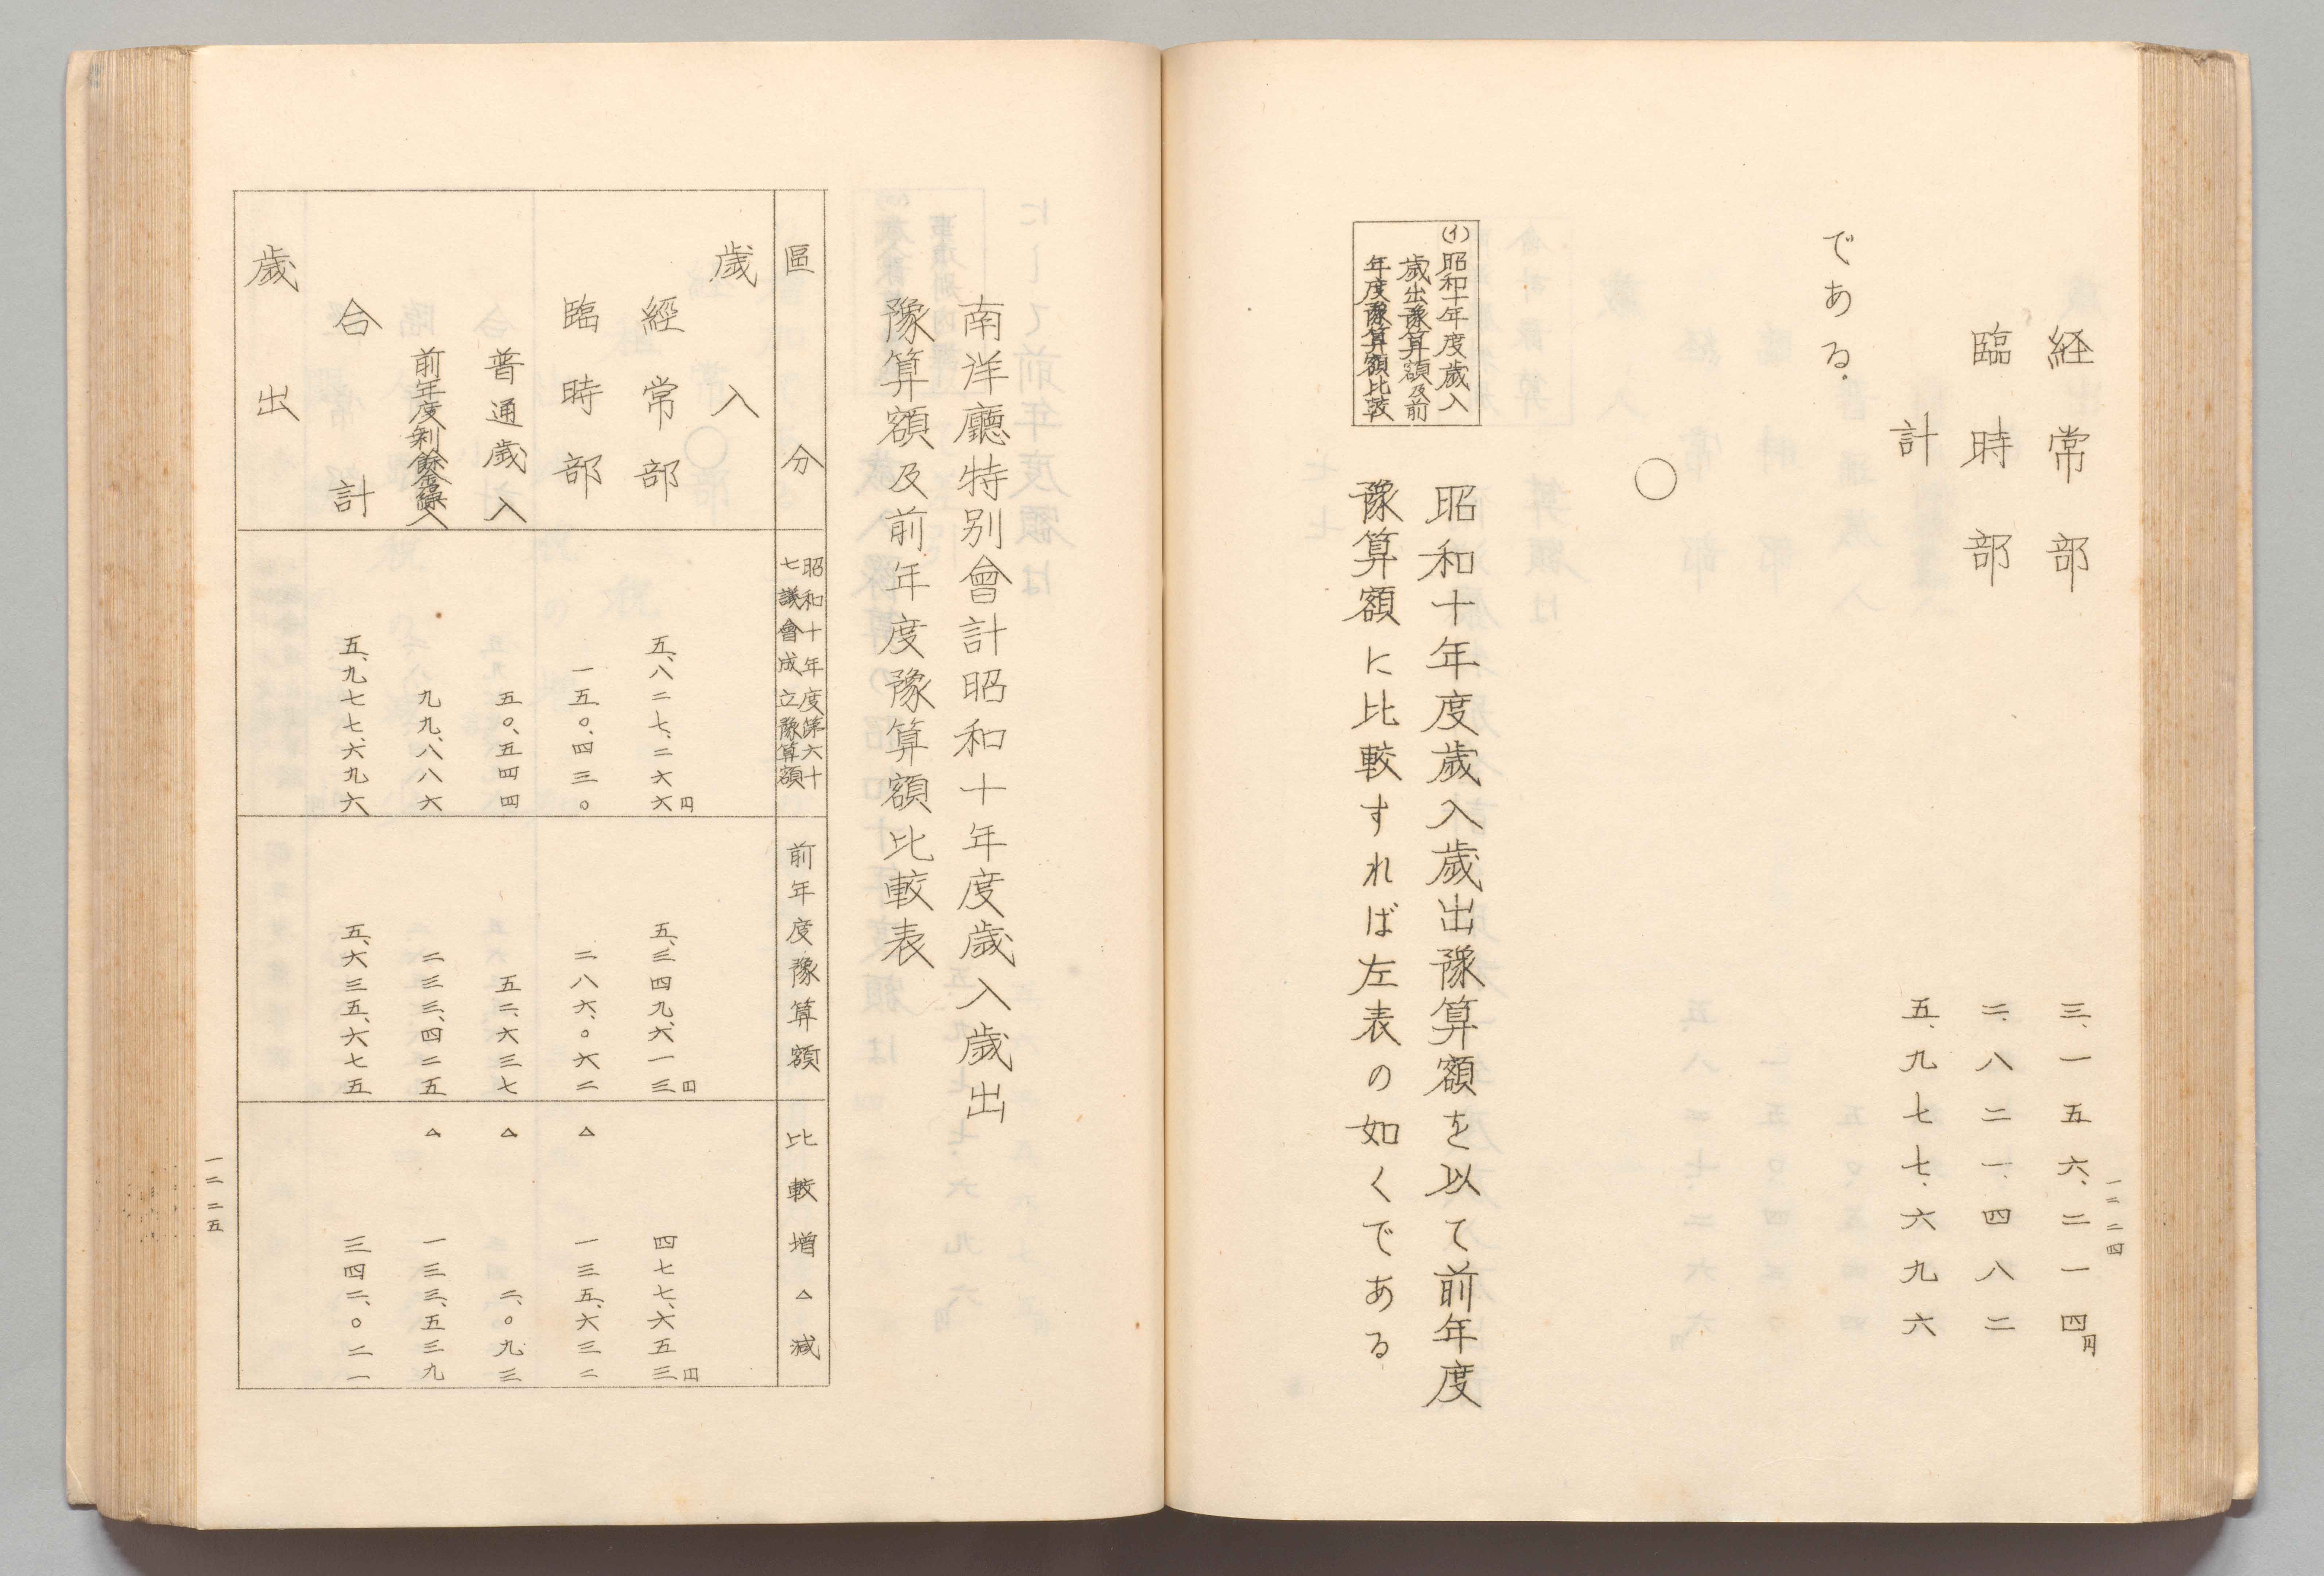 一二二四
経常部 三、一五六、二一四円
臨時部 二、八二一、四八二
計 五、九七七、六九六
である。
○
(イ)昭和十年度歳入
歳出豫算額及前
年度豫算額比較
昭和十年度歳入歳出豫算額を以て前年度
豫算額に比較すれば左表の如くである
南洋廳特別會計昭和十年度歳入歳出
豫算額及前年度豫算額比較表
區分 昭和十年度第六十七議會成立豫算額 前年度豫算額 比較増△減
歳入
經常部 五、八二七、二六六円 五、三四九、六一三円 四七七、六五三円
臨時部 一五〇、四三〇 二八六、〇六二 △一三五、六三二
普通歳入 五〇、五四四 五二、六三七 △二、〇九三
前年度剰餘金繰入 九九、八八六 二三三、四二五 △一三三、五三九
合計 五、九七七、六九六 五、六三五、六七五 三四二、〇二一
歳出
一二二五